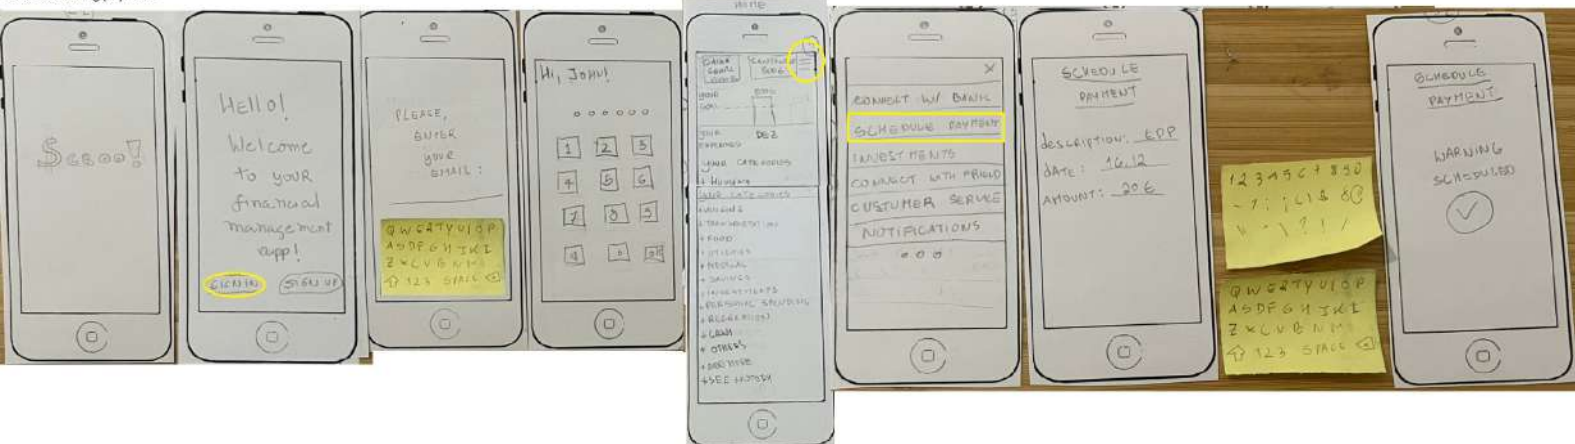 Hello!
Welcome
to your
financial
management
app!
SIGN IN
SIGN UP
PLEASE,
ENTER
YOUR
EMAIL:
QWERTYUIOP
123 SPACE
Hi, JOHN!
1 2 3
4 5 6
HOME
YOUR
DEZ
YOUR
EXPENSES
YOUR CATEGORIES
+ HOUSING
YOUR CATEGORIES
+ HOUSING
+ TRANSPORTATION
+ FOOD
+ UTILITIES
+ MEDICAL
+ SAVINGS
+ INVESTMENTS
+ PERSONAL SPENDING
+ RECREATION
+ LOAN
+ OTHERS
+ ADD MORE
X
CONNECT W/ BANK
SCHEDULE PAYMENT
INVESTMENTS
CONNECT WITH FRIEND
CUSTUMER SERVICE
NOTIFICATIONS
SCHEDULE
PAYMENT
DESCRIPTION: EDP
DATE: 16.12
AMOUNT: 20€
QWERTYUIOP
123 SPACE
SCHEDULE
PAYMENT
WARNING
SCHEDULED